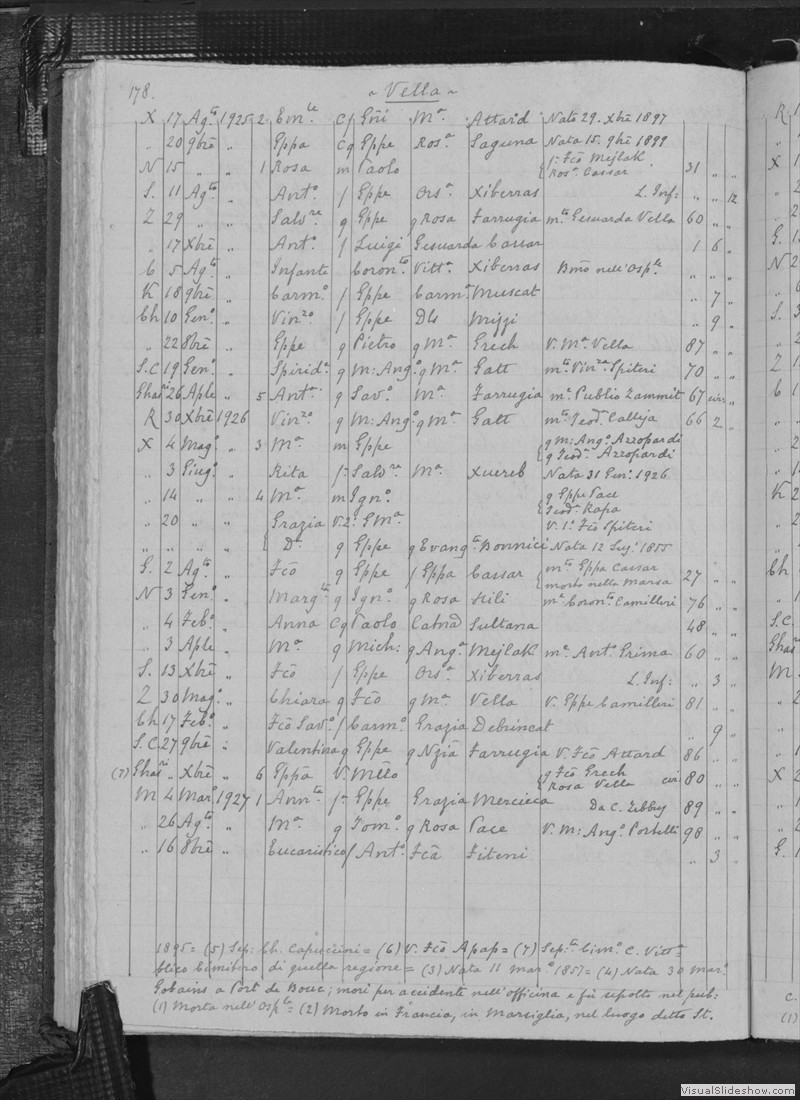 178.
~ Vella ~
X 17 Ag.to 1925 2 Em.le C/ Gñi M.a Attard Nato 29. Xbrẽ 1897
„ 20 9brẽ „ Eppa Cg Eppe Ros.a Saguna Nata 15. 9brẽ 1899
N 15 „ „ 1 Rosa m Paolo { f: Fcõ Mejlak 31 „ „
Ros.a Cassar
S. 11 Ag.to „ Ant.o / Eppe Ors.a Xiberras L. Inf: „ „ 12
Z 29 „ „ Salv.re g Eppe g Rosa Farrugia m.to Gesuarda Vella 60 „ „
„ 17 Xbrẽ „ Ant.o / Luigi Gesuarda Cassar 1 6 „
C 5 Ag.to „ Infante Coron.to Vitt.a Xiberras Bmõ nell'Osp.le „ „ „
K 18 9brẽ „ Carm.o / Eppe Carm.a Muscat „ 7 „
Ch 10 Gen.o „ Vin.zo / Eppe Dls Mizzi „ 9 „
„ 22 8brẽ „ Eppe g Pietro g M.a Grech V. M.a Vella 87 „ „
S.C 19 Gen.o „ Spirid.e g M: Ang.o g M.a Gatt m.to Vin.za Spiteri 70 „ „
Ghas.ri 26 Aple „ 5 Ant.a g Sav.o M.a Farrugia m.a Publio Zammit 67 cir. „
R 30 Xbrẽ 1926 Vin.zo g M: Ang.o g M.a Gatt m.to Teod.a Calleja 66 2 „
X 4 Mag.o „ 3 M.a m Eppe { g M: Ang.o Azzopardi
g Teod.a Azzopardi
„ 3 Giug.o „ Rita /- Salv.re M.a Xuereb Nata 31 Gen.o 1926
„ 14 „ „ 4 M.a m Ign.o { g Eppe Pace
Teod.a Rapa
„ 20 „ „ Grazia V.2.o GM.a V. 1.o Fcõ Spiteri
„ „ „ „ { D.a g Eppe g Evang.ta Bonnici Nata 12 Lug.o 1855
G. 2 Ag.to „ Fcõ g Eppe / Eppa Cassar { m.to Eppa Cassar 27 „ „
morto nella Marsa
N 3 Gen.o „ Marg.ta g Ign.o g Rosa Stili m.a Coron.to Camilleri 76 „ „
„ 4 Feb.o „ Anna Cg Paolo Catnã Sultana 48 „ „
„ 3 Aple „ M.a g Mich: g Ang.a Mejlak m.a Ant.o Grima 60 „ „
S. 13 Xbrẽ „ Fcõ / Eppe Ors.a Xiberras L. Inf: „ 3 „
Z 30 Mag.o „ Chiara g Fcõ g M.a Vella V. Eppe Camilleri 81 „ „
Ch 17 Feb.o „ Fcõ Sav.o / Carm.o Grazia Debrincat „ 9 „
S.C 27 9brẽ „ Valentina g Eppe g Nziã Farrugia V. Fcõ Attard 86 „ „
(7) Ghas.ri „ Xbrẽ „ 6 Eppa V. Mẽlo { g Fcõ Grech cir. 80 „ „
g Rosa Vella
M 4 Mar.o 1927 1 Ann.ta /- Eppe Grazia Mercieca Da C. Zibby 89 „ „
„ 26 Ag.to „ M.a g Tom.o g Rosa Pace V. M: Ang.o Portelli 98 „ „
„ 16 8brẽ „ Eucaristico / Ant.o Fcã Fiteni „ 3 „
1895 = (5) Sep: Ch. Capuccini = (6) V. Fcõ Apap = (7) Sep.ta Cim.o C. Vitt.a =
blico Cimitero di quella regione = (3) Nata 11 Mar.o 1857 = (4) Nata 30 Mar.o
Gobains a Port de Bouc; morì per accidente nell'officina e fu sepolto nel pub:
(1) Morta nell'Osp.le = (2) Morto in Francia, in Marsiglia, nel luogo detto St.
R
X
G.
N
S.
Z
C
K
Ch
S.C.
Ghas.ri
M
X
G.
C.
(1)
VisualSlideshow.com